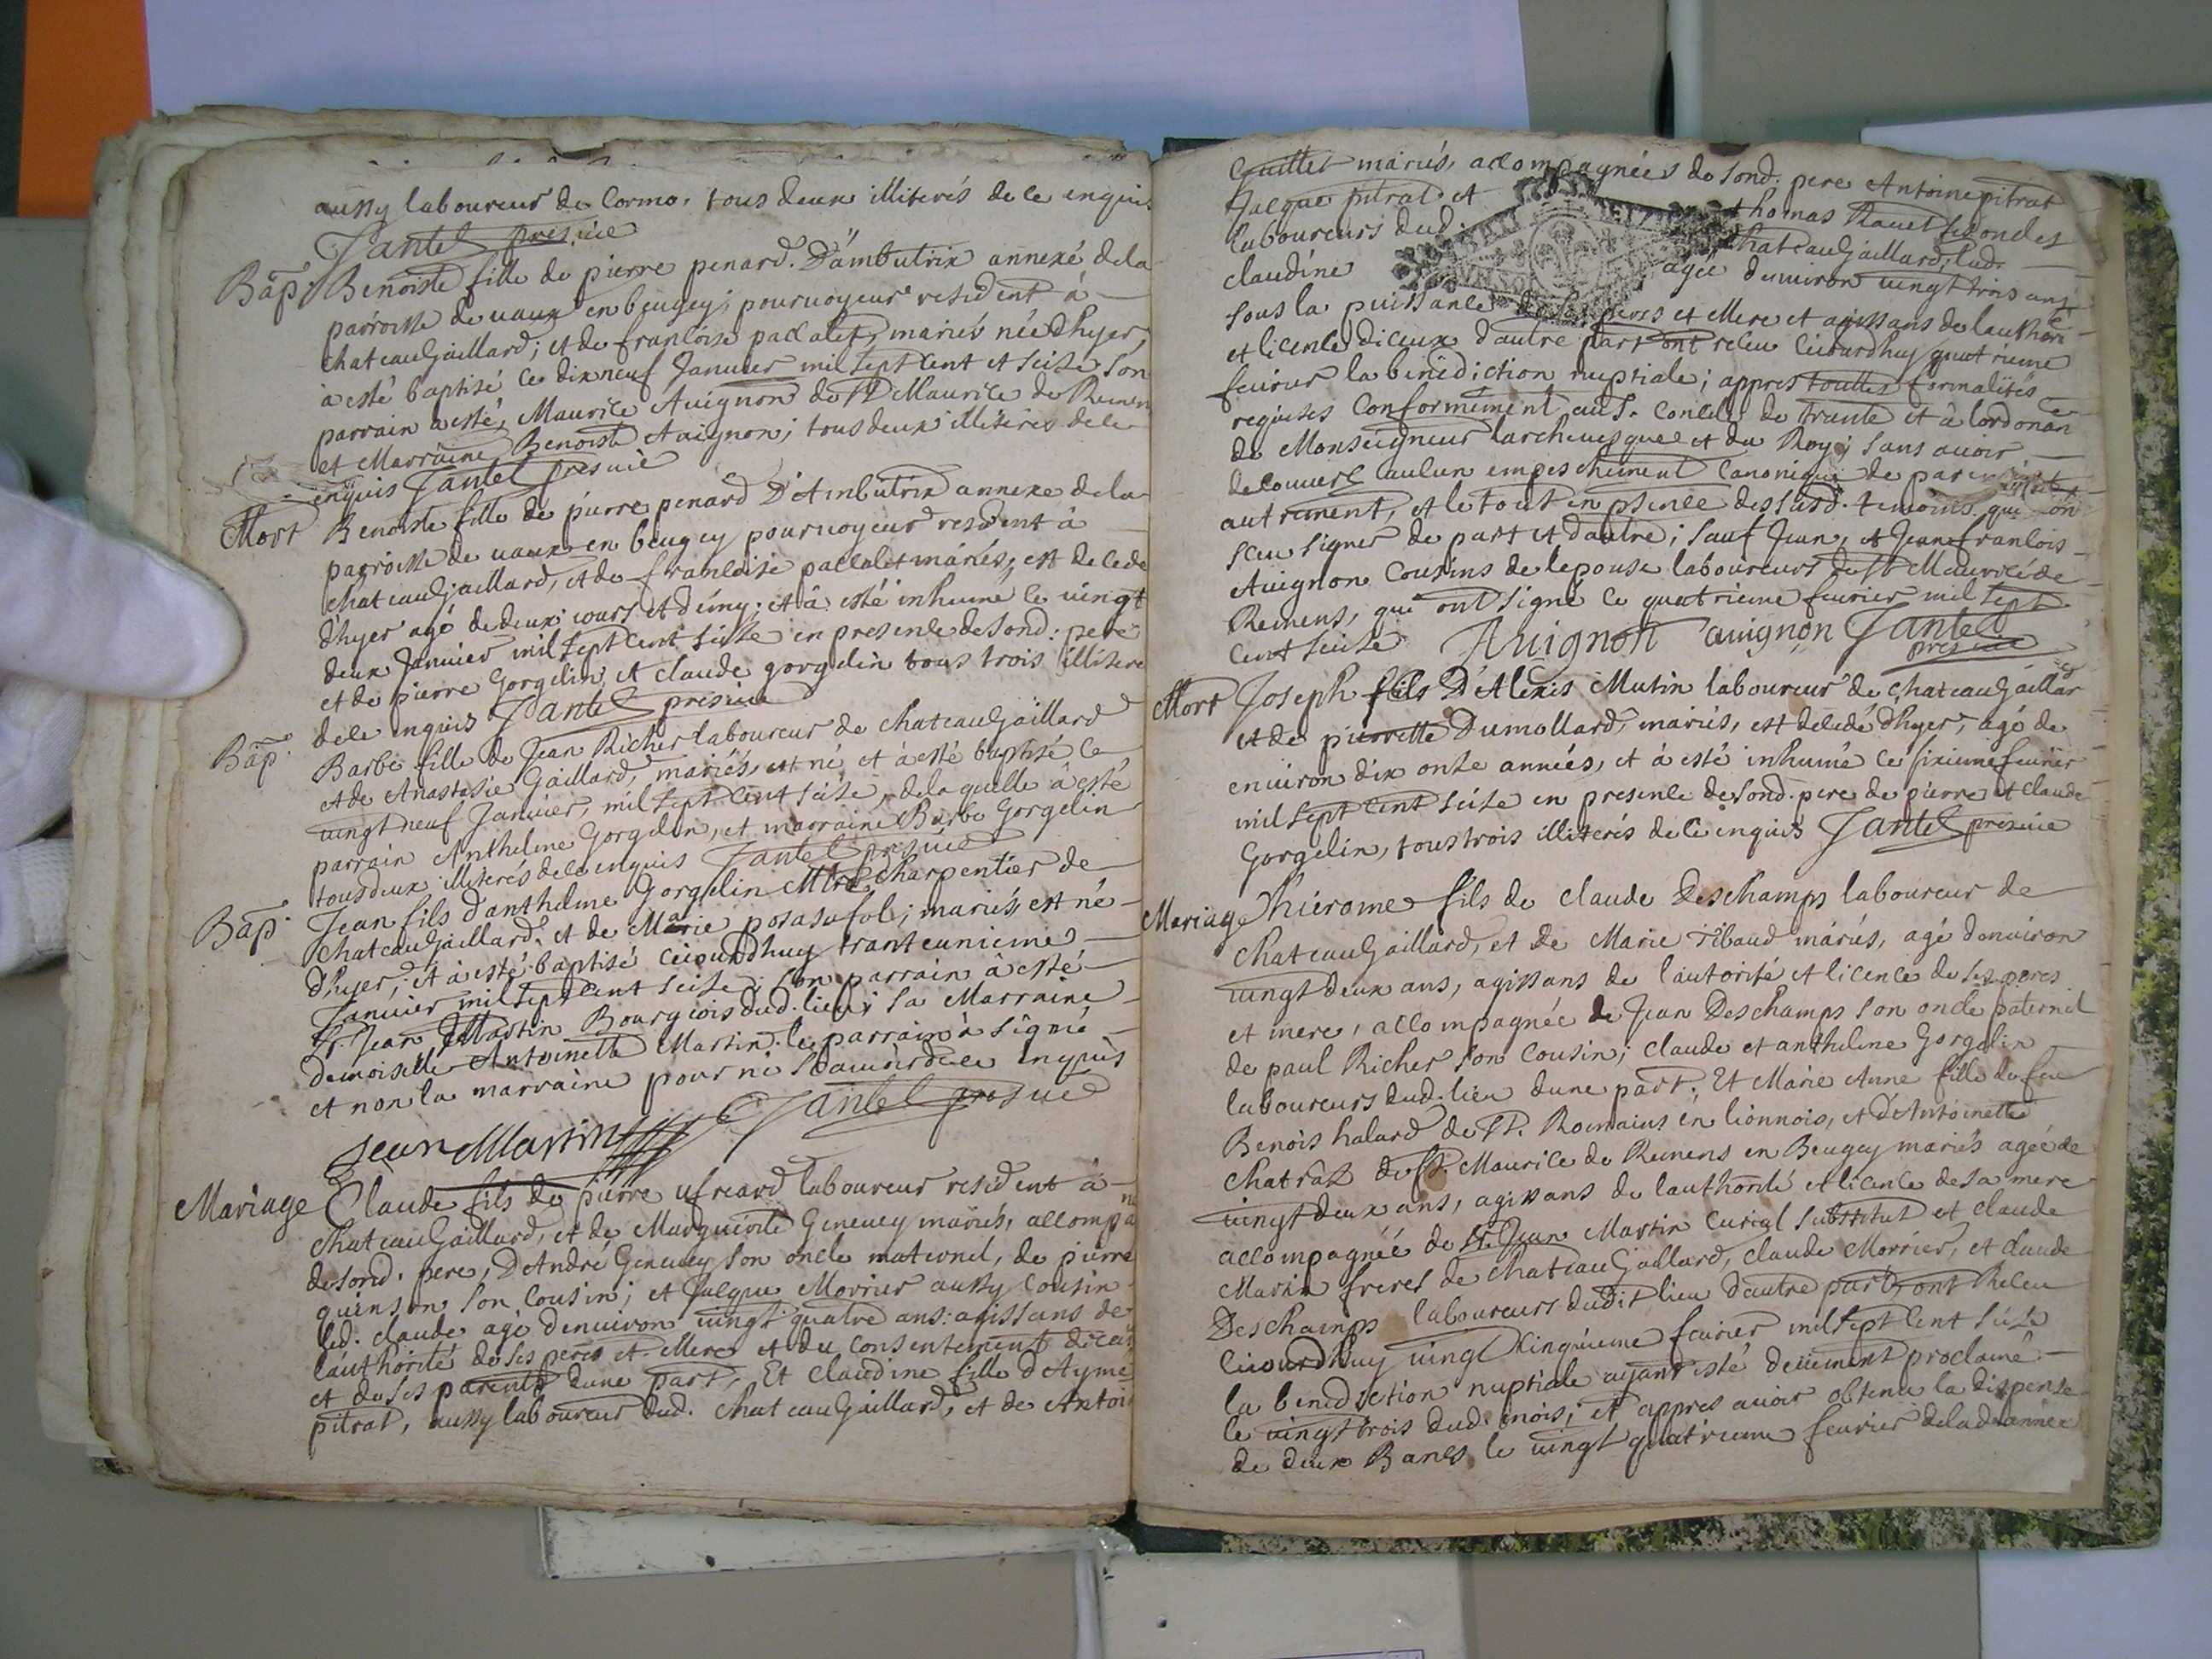 aussy laboureur de Cormo, tous deux illiterés de ce enquis
Jantet presvice
Bap. Benoiste fille de pierre penard. D'ambutrix annexé dela
parroisse de vaux en beugey; pourvoyeur resident à
chateauGaillard; et de francoise paccalet, mariés née dhyer,
à esté baptisé ce dixneuf Januier mil sept cent et seise son
parrain a esté, Maurice Auignon de St Maurice de Remen
et Marraine Benoiste Auignon; tous deux illiterés dece
enquis Jantet presvice
Mort Benoiste fille de pierre penard D'Ambutrix annexe dela
parroisse de vaux en beugey pourvoyeur resident à
chateauGaillard, et de francoise paccalet mariés, est decede
dhyer agé de deux jours et demy; et à esté inhumé ce vingt
deux Januier mil sept cent seise en presence de sond: pere
et de pierre Gorgelin, et claude gorgelin tous trois illitere
dece enquis Jantet presvice
Bap. Barbe fille de Jean Richer laboureur de chateauGaillard
et de Anastasie Gaillard, mariés, est né et à esté baptisé ce
vingt neuf Januier, mil sept cent seise, dela quelle à esté
parrain Anthelme Gorgelin, et marraine Barbe Gorgelin
tous deux illiterés dece enquis Jantet presvice
Bap. Jean fils d'anthelme Gorgelin Mtre Charpentier de
chateauGaillard, et de Marie posasafol; mariés, est né
dhyer, et à esté baptisé ceiourdhuy tranteunieme
Januier mil sept cent seise; son parrain à esté
Sr. Jean Martin Bourgiois dud. lieu; sa Marraine
demoiselle Antoinette Martin. le parrain à signé
et non la marraine pour ne scauoir dece enquis
Jean Martin Jantet presvice
Mariage Claude fils de pierre ufreard laboureur resident à
chateauGaillard, et de Marguerite Geneuey mariés, accompa
desond. pere, D'André Geneuey son oncle maternel, de pierre
quinson son cousin; et Jacque Morrier aussy cousin
led. claude agé denuiron vingt quatre ans: agissans de
lauthorité de ses peres et Mere et du consentement diceu
et de ses parents dune part, Et claudine fille d'Ayme
pitrat, aussy laboureur dud. chateauGaillard, et de Antoi
Cuillet mariés, accompagnées de sond. pere Antoine pitrat
Jacque pitrat et thomas Rauet
laboureurs dud. chateauGaillard, lad.
claudine agée denuiron vingt trois ans
sous la puissance de ses peres et Mere et agissans de lauthori
et licence diceux dautre part ont receu ceiourdhuy quatrieme
feurier la benediction nuptiale; appres touttes formalités
requises conformement au St. Concile de trante et à lordonan
de Monseigneur larcheuesque et du Roy; sans auoir
decouuert aulcun empeschement canonique de
autrement, et le tout en psence dessusd. temoins qui
sceu signer de part et dautre; sauf Jean, et Jeanfrancois
Auignon cousins de lepouse laboureurs de St Maurice de
Remens, qui ont signé ce quatrieme feurier mil sept
cent seise Auignon auignon Jantet
presvice
Mort Joseph fils D'Alexis Mutin laboureur de chateauGaillar
et de pierrette Dumollard, mariés, est decedé dhyer, agé de
enuiron dix onze années, et à esté inhumé ce sixieme feurier
mil sept cent seise en presence de sond. pere de pierre et claude
Gorgelin, tous trois illiterés dece enquis Jantet presvice
Mariage hierome fils de claude Deschamps laboureur de
chateauGaillard, et de Marie ribaud mariés, agé denuiron
vingt deux ans, agissans de lautorité et licence de ses peres
et mere, accompagnée de Jean Deschamps son oncle paternel
de paul Richer son cousin; claude et anthelme Gorgelin
laboureurs dud. lieu dune part. Et Marie Anne fille de feu
Benois halard de St. Romains en lionnois, et d'Antoinette
chatrat de St. Maurice de Remens en Beugey mariés agée de
vingt deux ans, agissans de lauthorité et licence de sa mere
accompagnée de Sr. Jean Martin curial substitut et claude
Martin freres de chateauGaillard, claude Morrier, et claude
Deschamps laboureurs dudit lieu dautre part, ont Receu
ceiourdhuy vingt cinquieme feurier mil sept cent seise
la benediction nuptiale ayant esté deüement proclamé
le vingt trois dud. mois; et appres auoir obtenu la dispense
de deux Bancs le vingt quatrieme feurier delad. année